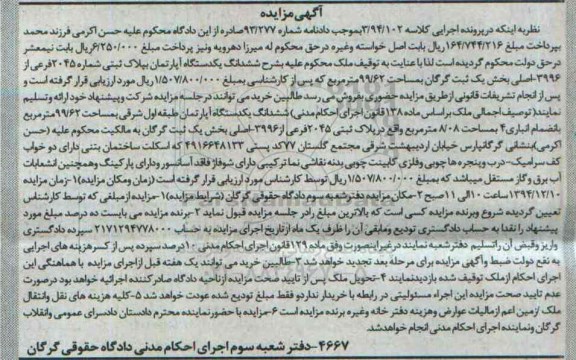 آگهی مزایده
نظر به اینکه در پرونده اجرایی کلاسه ۳/۹۴/۱۰۲ بموجب دادنامه شماره ۹۳/۲۷۷ صادره از این دادگاه محکوم علیه حسن اکرمی فرزند محمد
بپرداخت مبلغ ۱۶۴/۷۴۴/۲۱۶ ریال بابت اصل خواسته وغیره درحق محکوم له میرزا دهرویه ونیز پرداخت مبلغ ۶/۲۵۰/۰۰۰ ریال بابت نیمعشر
درحق دولت محکوم گردیده است لذا با عنایت به توقیف ملک محکوم علیه بشرح ششدانگ یکدستگاه آپارتمان بپلاک ثبتی شماره ۲۰۴۵ فرعی از
۳۹۹۶- اصلی بخش یک ثبت گرگان بمساحت ۹۹/۶۲ مترمربع که پس از کارشناسی بمبلغ ۱/۵۰۷/۸۰۰/۰۰۰ ریال مورد ارزیابی قرار گرفته است و
پس از انجام تشریفات قانونی از طریق مزایده حضوری بفروش می رسد طالبین خرید می توانند در جلسه مزایده شرکت وپیشنهاد خود ارائه وتسلیم
نمایند (توصیف اجمالی ملک براساس ماده ۱۳۸ قانون اجرای احکام مدنی) ششدانگ یکدستگاه آپارتمان طبقه اول شرقی بمساحت ۹۹/۶۲ مترمربع
بانضمام انباری ۴ بمساحت ۸/۰۸ مترمربع واقع در پلاک ثبتی ۲۰۴۵ فرعی از ۳۹۹۶- اصلی بخش یک ثبت گرگان به مالکیت محکوم علیه (حسن
اکرمی) بنشانی گرگانپارس خیابان اردیبهشت شرقی مجتمع گلستان ۷۷ کد پستی ۴۹۱۶۶۴۸۱۳۳ که اسکلت ساختمان بتنی دارای دو خواب
کف سرامیک- درب وپنجره ها چوبی وفلزی کابینت چوبی بدنه نقاشی نما ترکیبی دارای شوفاژ فاقد آسانسور ودارای پارکینگ وهمچنین انشعابات
آب برق وگاز مستقل میباشد که بمبلغ ۱/۵۰۷/۸۰۰/۰۰۰ ریال توسط کارشناس مورد ارزیابی قرار گرفته است (زمان ومکان مزایده) ۱- زمان مزایده
۱۳۹۴/۱۲/۱۰ ساعت ۱۰ الی ۱۱ صبح ۲- مکان مزایده: دفتر شعبه سوم دادگاه حقوقی گرگان (شرایط مزایده) ۱- مزایده از مبلغی که توسط کارشناس
تعیین گردیده شروع وبرنده مزایده کسی است که بالاترین مبلغ را در جلسه مزایده قبول نماید ۲- برنده مزایده می بایست ده درصد مبلغ مورد
پیشنهاد را نقدا به حساب دادگستری تودیع ومابقی آن را ظرف یک ماه از تاریخ اجرای مزایده به حساب ۲۱۷۱۲۹۴۷۷۸۰۰۰ سپرده دادگستری
واریز وقبض آن راتسلیم دفتر شعبه نمایند درغیراینصورت وفق ماده ۱۲۹ قانون اجرای احکام مدنی ۱۰ درصد سپرده پس از کسر هزینه های اجرایی
به نفع دولت ضبط وآگهی مزایده برای مرحله بعد تجدید خواهد شد ۳- طالبین خرید می توانند یک هفته قبل ازاجرای مزایده با هماهنگی این
اجرای احکام از ملک توقیف شده بازدید نمایند ۴- تحویل ملک پس از تایید صحت مزایده ازناحیه دادگاه صادرکننده اجرائیه خواهد بود درصورت
عدم تایید صحت مزایده این اجراء مسئولیتی در رابطه با خریدار ندارد و فقط مبلغ تودیع شده عودت خواهد شد ۵- کلیه هزینه های نقل وانتقال
ملک ازمین اعم از مالیات عوارض وهزینه دفتر خانه وغیره برنده مزایده است ۶- مزایده با حضور نماینده محترم دادستان دادسرای عمومی وانقلاب
گرگان ونماینده اجرای احکام مدنی انجام خواهد شد.
۴۶۶۷- دفتر شعبه سوم اجرای احکام مدنی دادگاه حقوقی گرگان